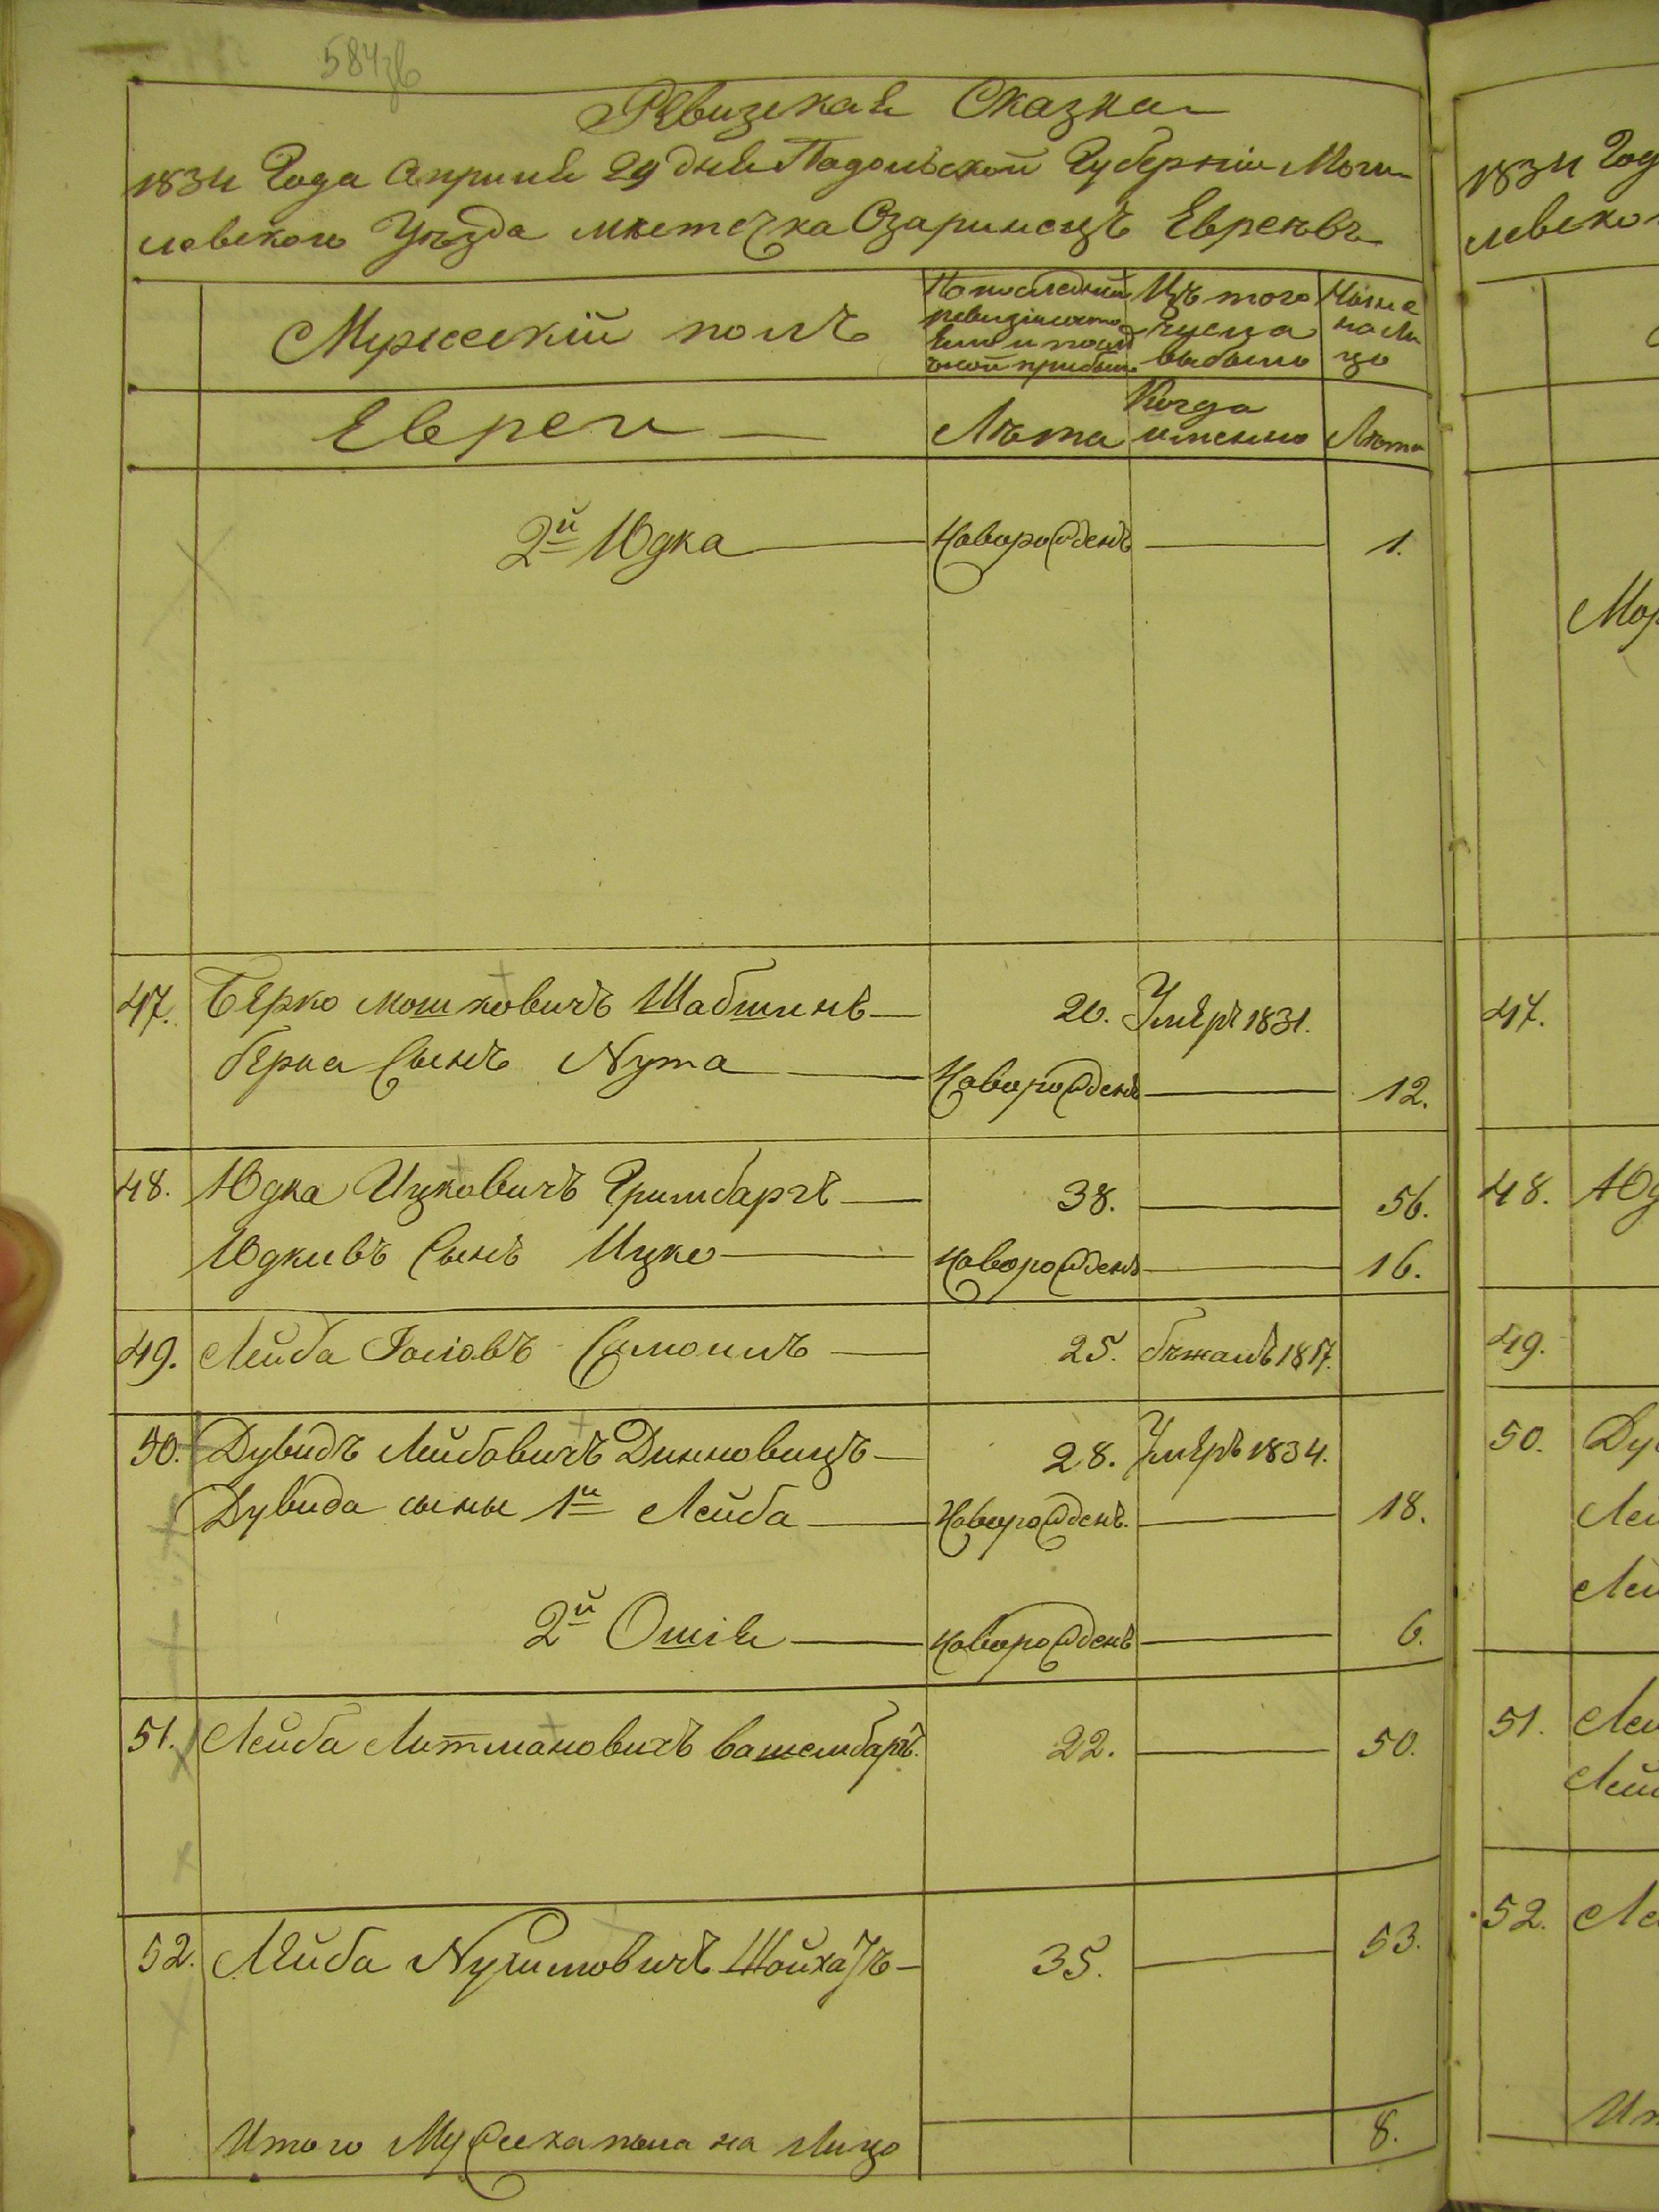 584зв
Ревизская Сказка
1834 Года Апреля 29 дня Падольской Губерніи Моги-
левскаго Уѣзда мѣстечка Озаринецъ Евреевъ
Мужескій полъ
По последней ревизіи состояло и после оной прибыло
Изъ того числа выбыло
Ныне на лицо
Евреи
Лѣта
Когда именно
Лѣта
2й Юдка Наворожденъ 1.
47. Берко мошковичъ Шабшинъ 20. Умеръ 1831.
берка Сынъ Нута Наворожденъ 12.
48. Юдка Ицковичъ Гримбаргъ 38. 56.
Юдкивъ Сынъ Ицко Наворожденъ 16.
49. Лейба 25. бежалъ 1817.
50. Дувидъ Лейбовичъ Динновицъ 28. Умеръ 1834.
Дувида сыны 1й Лейба Наворожденъ 18.
2й Ошія Наворожденъ 6.
51. Лейба Литмановичъ 22. 50.
52. Лейба Нухимовичъ 35. 53.
Итого Мужеска пола на Лицо 8.
1834 Год
47.
48. Юд
49.
50. Ду
Лей
Лей
51. Лей
Лей
52. Ле
Ит